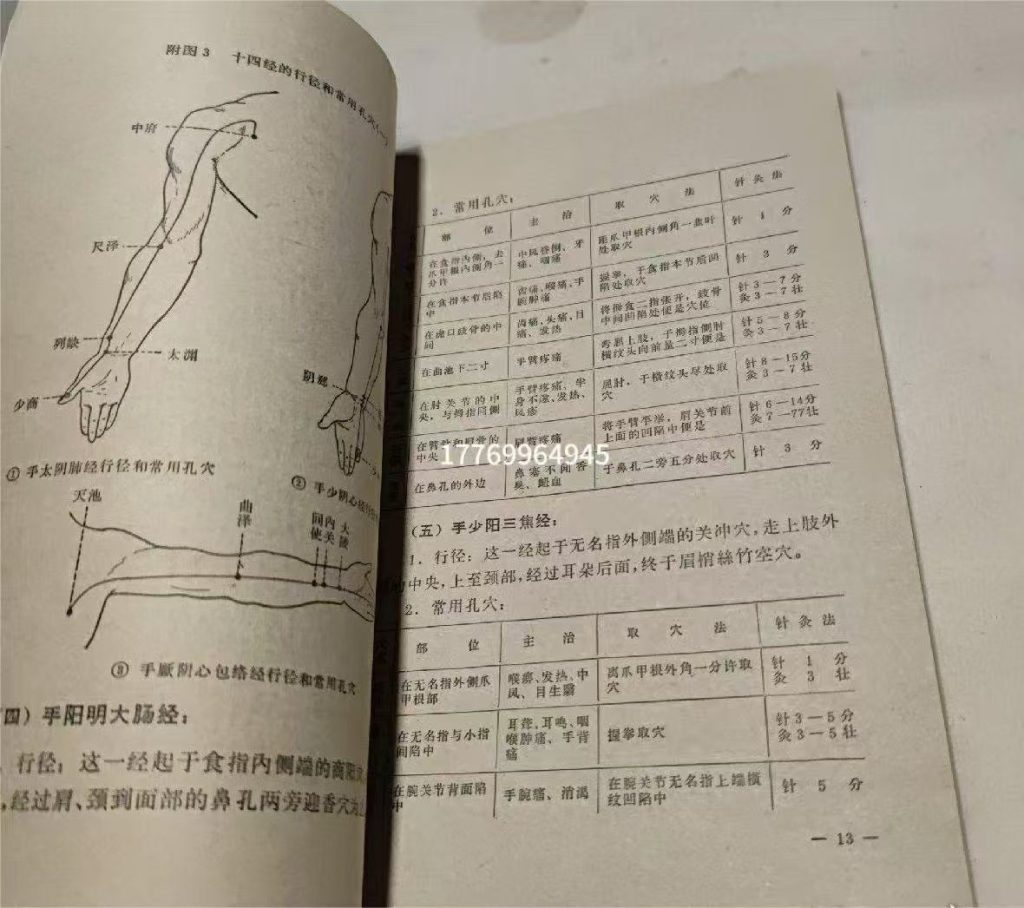 附图3 十四经的行径和常用孔穴(一)
中府
尺泽
列缺
太渊
少商
阴郄
①手太阴肺经行径和常用孔穴
②手少阴心经
天池
曲泽
间使
内关
大陵
③手厥阴心包络经行径和常用孔穴
四)手阳明大肠经:
行径:这一经起于食指内侧端的商阳
,经过肩、颈到面部的鼻孔两旁迎香穴为
2.常用孔穴:
部位 主治 取穴法 针灸法
在食指内侧,去爪甲根内侧角一分许 中风昏倒、牙痛、咽痛 距爪甲根内侧角一韭叶处取穴 针1分
在食指本节后陷中 齿痛、喉痛、手腕肿痛 握拳,于食指本节后凹陷处取穴 针3分
在虎口歧骨的中间 齿痛、头痛、目痛、发热 将拇食二指张开,歧骨中间凹陷处便是穴位 针3-7分 灸3-7壮
在曲池下二寸 手臂疼痛 弯屈上肢,于拇指侧肘横纹头向前量二寸便是 针5-8分 灸3-7壮
在肘关节的中央,与拇指同侧 手臂疼痛、半身不遂、发热、风疹 屈肘,于横纹头尽处取穴 针8-15分 灸3-7壮
在臂骨和肩骨的中央 肩臂疼痛 将手臂平举,肩关节前上面的凹陷中便是 针6-14分 灸7-77壮
在鼻孔的外边 鼻塞不闻香臭、衄血 于鼻孔二旁五分处取穴 针3分
17769964945
(五)手少阳三焦经:
1.行径:这一经起于无名指外侧端的关冲穴,走上肢外
中央,上至颈部,经过耳朵后面,终于眉梢絲竹空穴。
2.常用孔穴:
部位 主治 取穴法 针灸法
在无名指外侧爪甲根部 喉痹、发热、中风、目生翳 离爪甲根外角一分许取穴 针1分 灸3壮
在无名指与小指间陷中 耳聋、耳鸣、咽喉肿痛、手背痛 握拳取穴 针3-5分 灸3-5壮
在腕关节背面陷中 手腕痛、消渴 在腕关节无名指上端横纹凹陷中 针5分
— 13 —